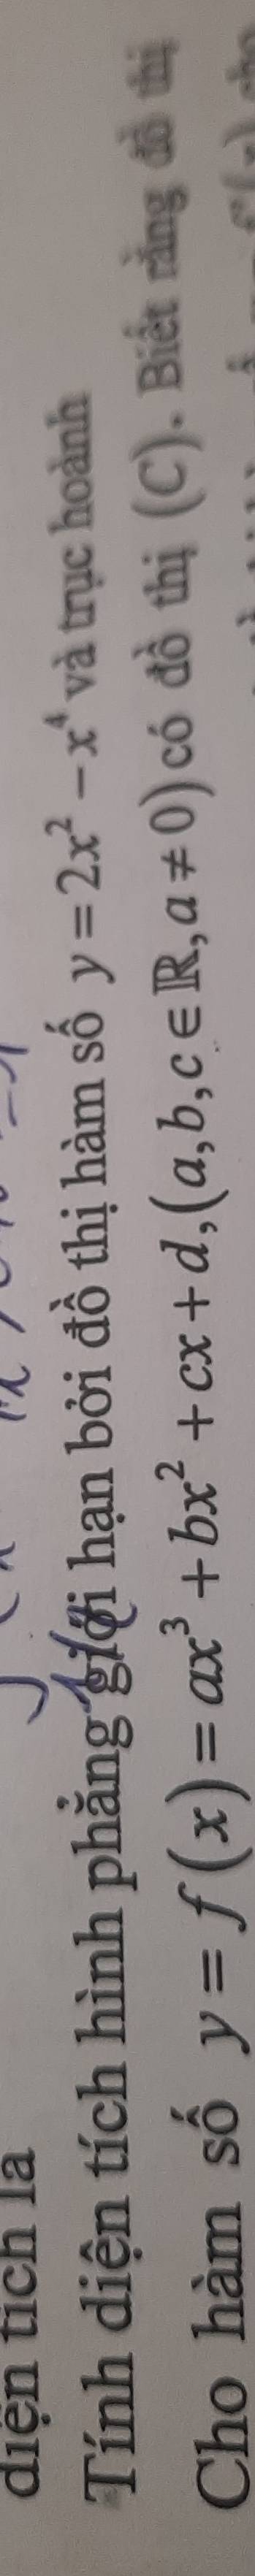 diện tích là
Tính diện tích hình phẳng giới hạn bởi đồ thị hàm số y = 2x² − x⁴ và trục hoành
Cho hàm số y = f(x) = ax³ + bx² + cx + d, (a, b, c ∈ ℝ, a ≠ 0) có đồ thị (C). Biết rằng đồ thị